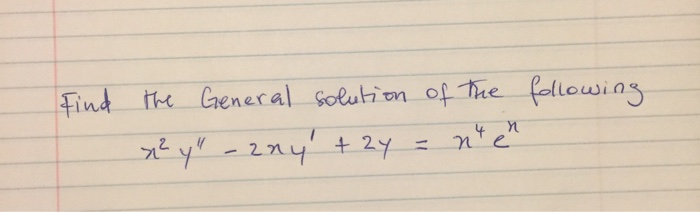 Find the General solution of the following
x² y'' - 2xy' + 2y = x⁴ eˣ